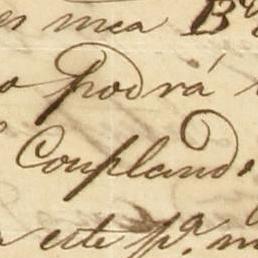 es mea B
o podrá
Coupland.
este p.ª m